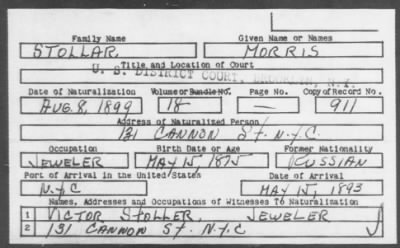 Family Name Given Name or Names
STOLLAR, MORRIS
Title and Location of Court
U. S. DISTRICT COURT, BROOKLYN, N.Y.
Date of Naturalization Volume or Bundle No. Page No. Copy of Record No.
AUG. 8, 1899 18 — 911
Address of Naturalized Person
131 CANNON ST. N.Y.C.
Occupation Birth Date or Age Former Nationality
JEWELER MAY 15, 1875 RUSSIAN
Port of Arrival in the United States Date of Arrival
N.Y.C MAY 15, 1893
Names, Addresses and Occupations of Witnesses To Naturalization
1 VICTOR STOLLER, JEWELER
2 131 CANNON ST. N.Y.C